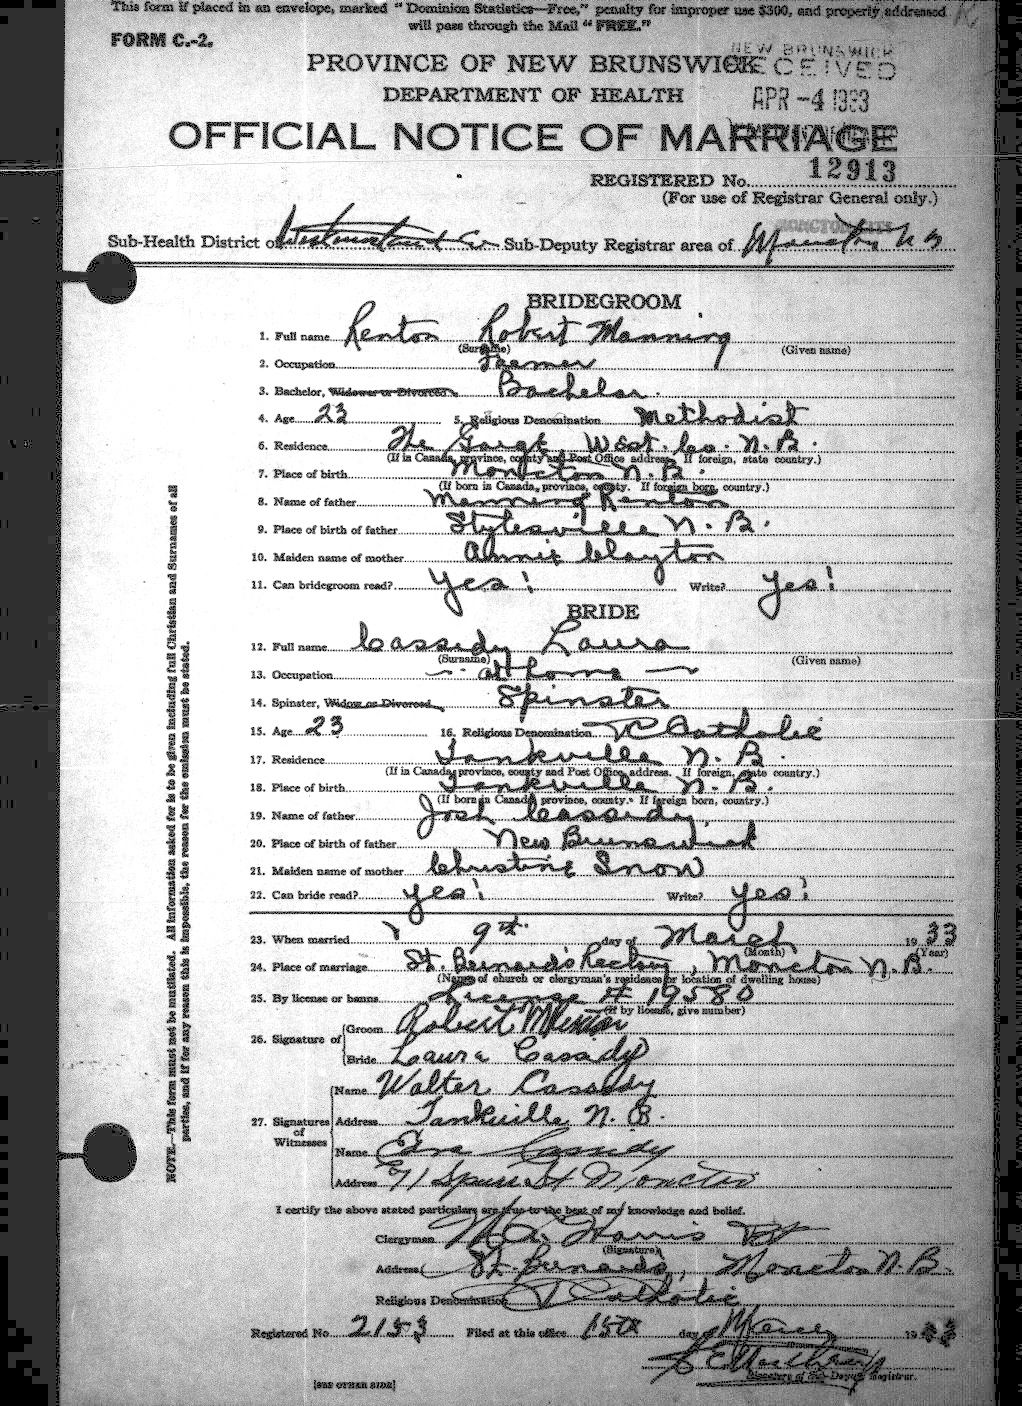 This form if placed in an envelope, marked "Dominion Statistics—Free," penalty for improper use $300, and properly addressed
will pass through the Mail "FREE."
FORM C.-2.
PROVINCE OF NEW BRUNSWICK
NEW BRUNSWICK
RECEIVED
DEPARTMENT OF HEALTH
APR -4 1933
OFFICIAL NOTICE OF MARRIAGE
REGISTERED No. 12913
(For use of Registrar General only.)
Sub-Health District of Westmorland Co. Sub-Deputy Registrar area of Moncton N B
BRIDEGROOM
1. Full name Renton Robert Manning
(Surname) (Given name)
2. Occupation Farmer
3. Bachelor, Widower or Divorced Bachelor.
4. Age 23 5. Religious Denomination Methodist
6. Residence The Gorge West. Co. N.B.
(If in Canada, province, county and Post Office address. If foreign, state country.)
7. Place of birth Moncton N.B.
(If born in Canada, province, county. If foreign born, country.)
8. Name of father Manning Renton
9. Place of birth of father Stylesville N.B.
10. Maiden name of mother Annie Clayton
11. Can bridegroom read? Yes! Write? Yes!
BRIDE
12. Full name Cassidy Laura
(Surname) (Given name)
13. Occupation — at home —
14. Spinster, Widow or Divorced Spinster
15. Age 23 16. Religious Denomination R Catholic
17. Residence Tankville N.B.
(If in Canada, province, county and Post Office address. If foreign, state country.)
18. Place of birth Tankville N.B.
(If born in Canada, province, county. If foreign born, country.)
19. Name of father Josh Cassidy,
20. Place of birth of father New Brunswick
21. Maiden name of mother Christine Snow
22. Can bride read? yes! Write? yes!
23. When married 9th day of March 1933
(Month) (Year)
24. Place of marriage St. Bernard's Rectory, Moncton N.B.
(Name of church or clergyman's residence or location of dwelling house)
25. By license or banns License # 19580
(If by license, give number)
26. Signature of
Groom Robert M Renton
Bride Laura Cassady
27. Signatures of Witnesses
Name Walter Cassady
Address Tankville N.B.
Name Cassidy
Address 71 Spurr St Moncton
I certify the above stated particulars are true to the best of my knowledge and belief.
Clergyman Harris
(Signature)
Address St. Bernards, Moncton N.B.
Religious Denomination R Catholic
Registered No. 2153 Filed at this office 15th day of March 1933
Signature of Sub-Deputy Registrar.
[SEE OTHER SIDE]
NOTE.—This form must not be mutilated. All information asked for is to be given including full Christian and Surnames of all
parties, and if for any reason this is impossible, the reason for the omission must be stated.